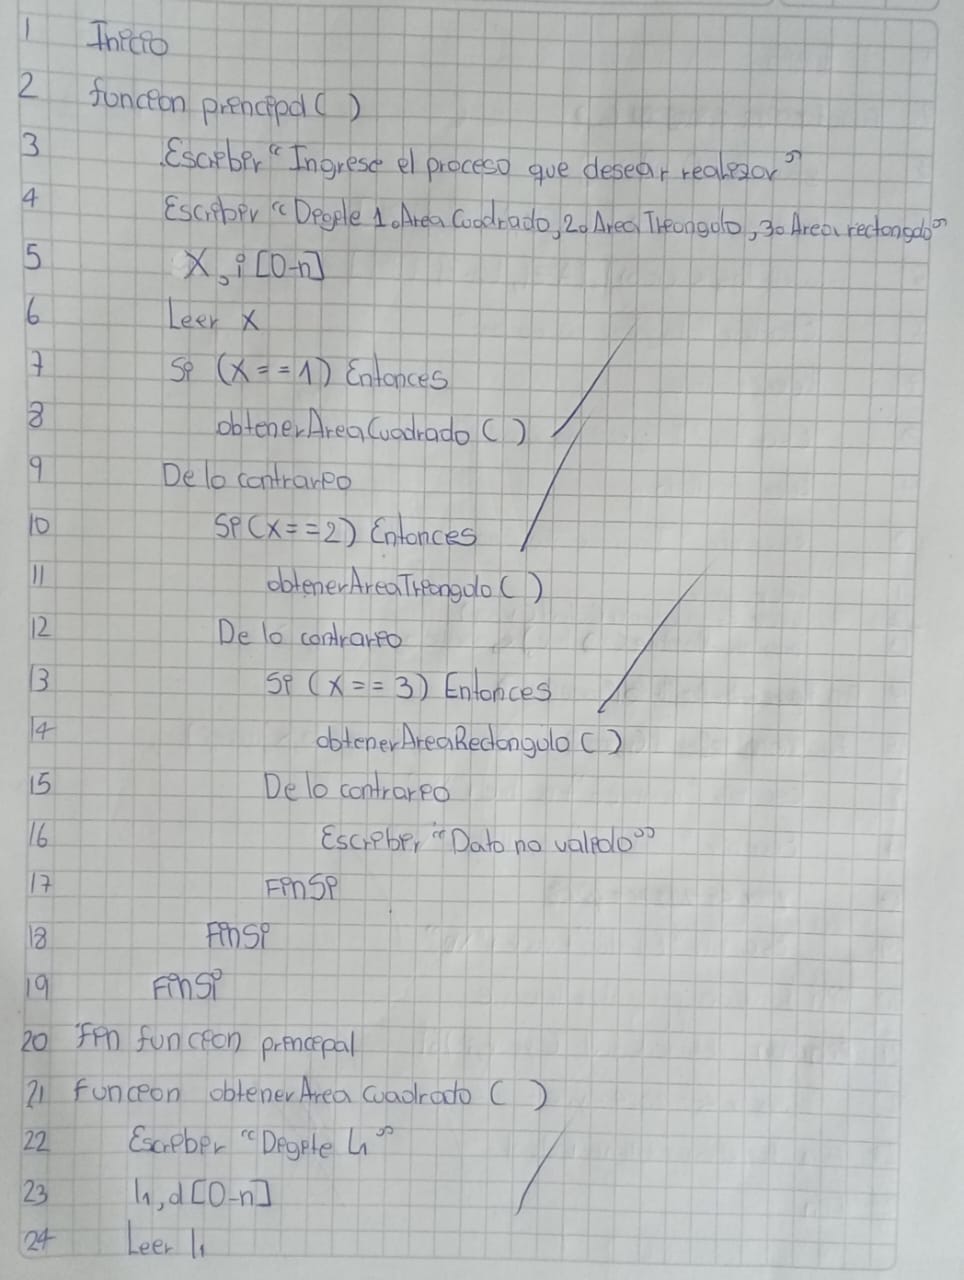 1 Inicio
2 funcion principal ( )
3 Escriber “Ingrese el proceso que desear realizar”
4 Escriber “Degite 1. Area Cuadrado, 2. Area Treangulo, 3. Area rectangulo”
5 X, i [0-n]
6 Leer x
7 Si (x == 1) Entonces
8 obtenerAreaCuadrado ( )
9 De lo contrario
10 Si (x == 2) Entonces
11 obtenerAreaTriangulo ( )
12 De lo contrario
13 Si (x == 3) Entonces
14 obtenerAreaRectangulo ( )
15 De lo contrario
16 Escriber “Dato no valido”
17 FinSi
18 FinSi
19 FinSi
20 Fin funcion principal
21 Funcion obtenerArea Cuadrado ( )
22 Escriber “Digite L1”
23 L1, d [0-n]
24 Leer L1